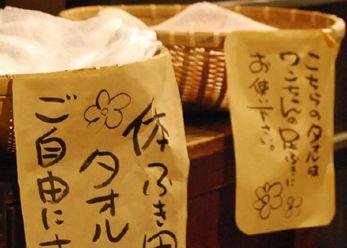 体ふき用
タオル
ご自由にさ
こちらのタオルは
ワンちゃんの足ふきに
お使い下さい。